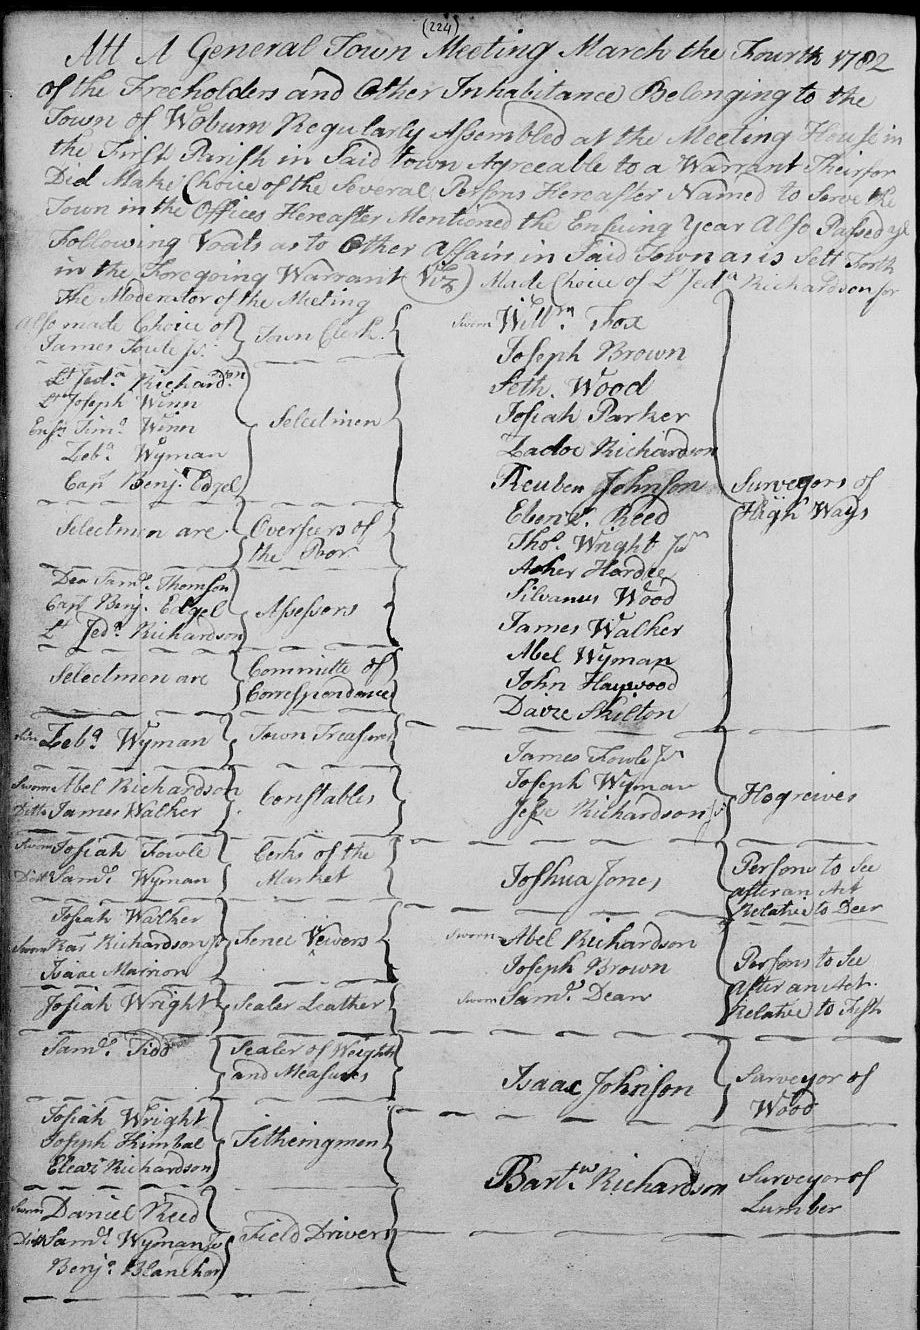 (224)
Att A General Town Meeting March the Fourth 1782
of the Freeholders and Other Inhabitance Belonging to the
Town of Woburn Regularly Assembled at the Meeting House in
the First Parish in Said town Agreeable to a Warrant Theirfor
Did Make Choice of the Several Persons Hereafter Named to Serve the
Town in the Offices Hereafter Mentioned the Ensuing Year Also Passed ye
Following Voats as to Other Affairs in Said Town as is Sett Forth
in the Foregoing Warrant (Viz) Made Choice of Lt Jeda Richardson for
the Moderator of the Meeting
Also made Choice of
James Fowle Jr.
Town Clerk.
Lt Jeda Richardson
Lt Joseph Winn
Ensn Timo Winn
Zeba Wyman
Capt Benja Edgel
Selectmen
Selectmen are
Overseers of
the Poor
Dea Saml. Thomson
Capt Benj. Edgel
Lt Jeda Richardson
Assessors
Selectmen are
Committe of
Correspondance
Zeba Wyman
Town Treasurer
Sworn Abel Richardson
Ditto James Walker
Constables
Sworn Josiah Fowle
Ditto Saml. Wyman
Clerks of the
Market
Josiah Walker
Sworn Richardson Jr
Isaac Marrion
Fence Vewers
Josiah Wright
Sealer Leather
Saml. Tidd
Sealer of Weights
and Measures
Josiah Wright
Joseph Kimbal
Eleazr Richardson
Titheingmen
Sworn Daniel Reed
Ditto Saml. Wyman Jr
Benja Blanchard
Field Drivers
Sworn Willm. Fox
Joseph Brown
Seth. Wood
Josiah Parker
Zadoc Richardson
Reuben Johnson
Ebenr. Reed
Thos. Wright Jr
Asher Hardee
Silvanus Wood
James Walker
Abel Wyman
John Haywood
Davie Skilton
Surveyors of
High Ways
James Fowle Jr
Joseph Wyman
Jesse Richardson Jr
Hogreives
Joshua Jones
Persons to See
after an Act
Relative to Deer
Sworn Abel Richardson
Joseph Brown
Sworn Saml. Dean
Persons to See
after an Act.
Relative to Fish
Isaac Johnson
Surveyor of
Wood
Bartw. Richardson
Surveyor of
Lumber